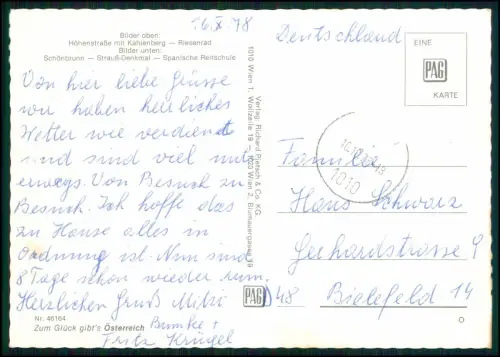 16.X.78
Bilder oben:
Höhenstraße mit Kahlenberg — Riesenrad
Bilder unten:
Schönbrunn — Strauß-Denkmal — Spanische Reitschule
Von hier liebe Grüsse
wir haben herrliches
Wetter wie verdient
und sind viel unter-
wegs. Von Besuch zu
Besuch. Ich hoffe das
zu Hause alles in
Ordnung ist. Nun sind
8 Tage schon wieder rum.
Herzlichen Gruß Mitzi
Brunke +
Fritz Krügel
Nr. 46164
Zum Glück gibt's Österreich
Verlag: Richard Pietsch & Co. KG.
1010 Wien 1, Wollzeile 19 — 1020 Wien 2,
PAG
Deutschland
EINE
PAG
KARTE
1010
Familie
Hans Schwarz
Gerhardstrasse 9
D 48 Bielefeld 14